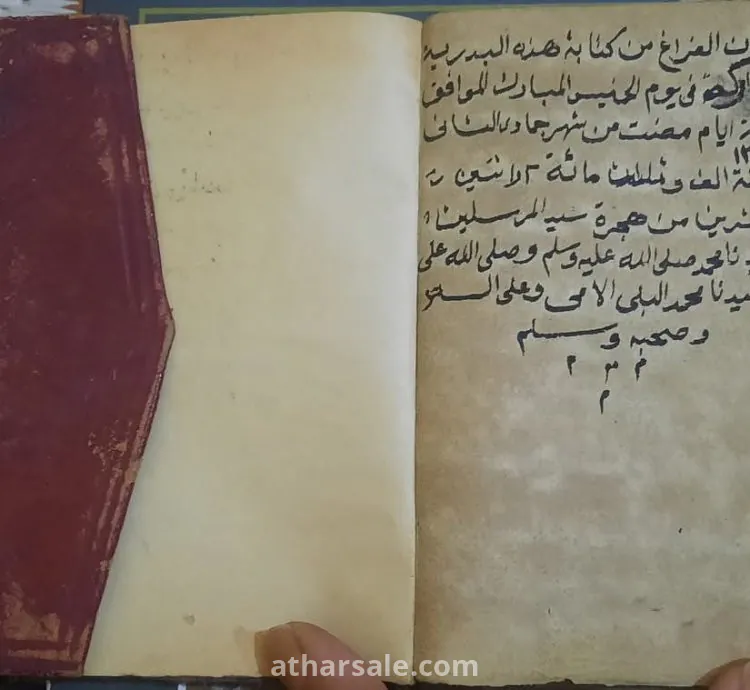 الفراغ من كتابة هذه البدرية
في يوم الخميس المبارك الموافق
ايام مضت من شهر جمادى الثانى
الف وثلاث مائة اثنين
من هجرة سيد المرسلين
محمد صلى الله عليه وسلم وصلى الله على
محمد النبى الامى وعلى
وصحبه وسلم
م م م
م
atharsale.com